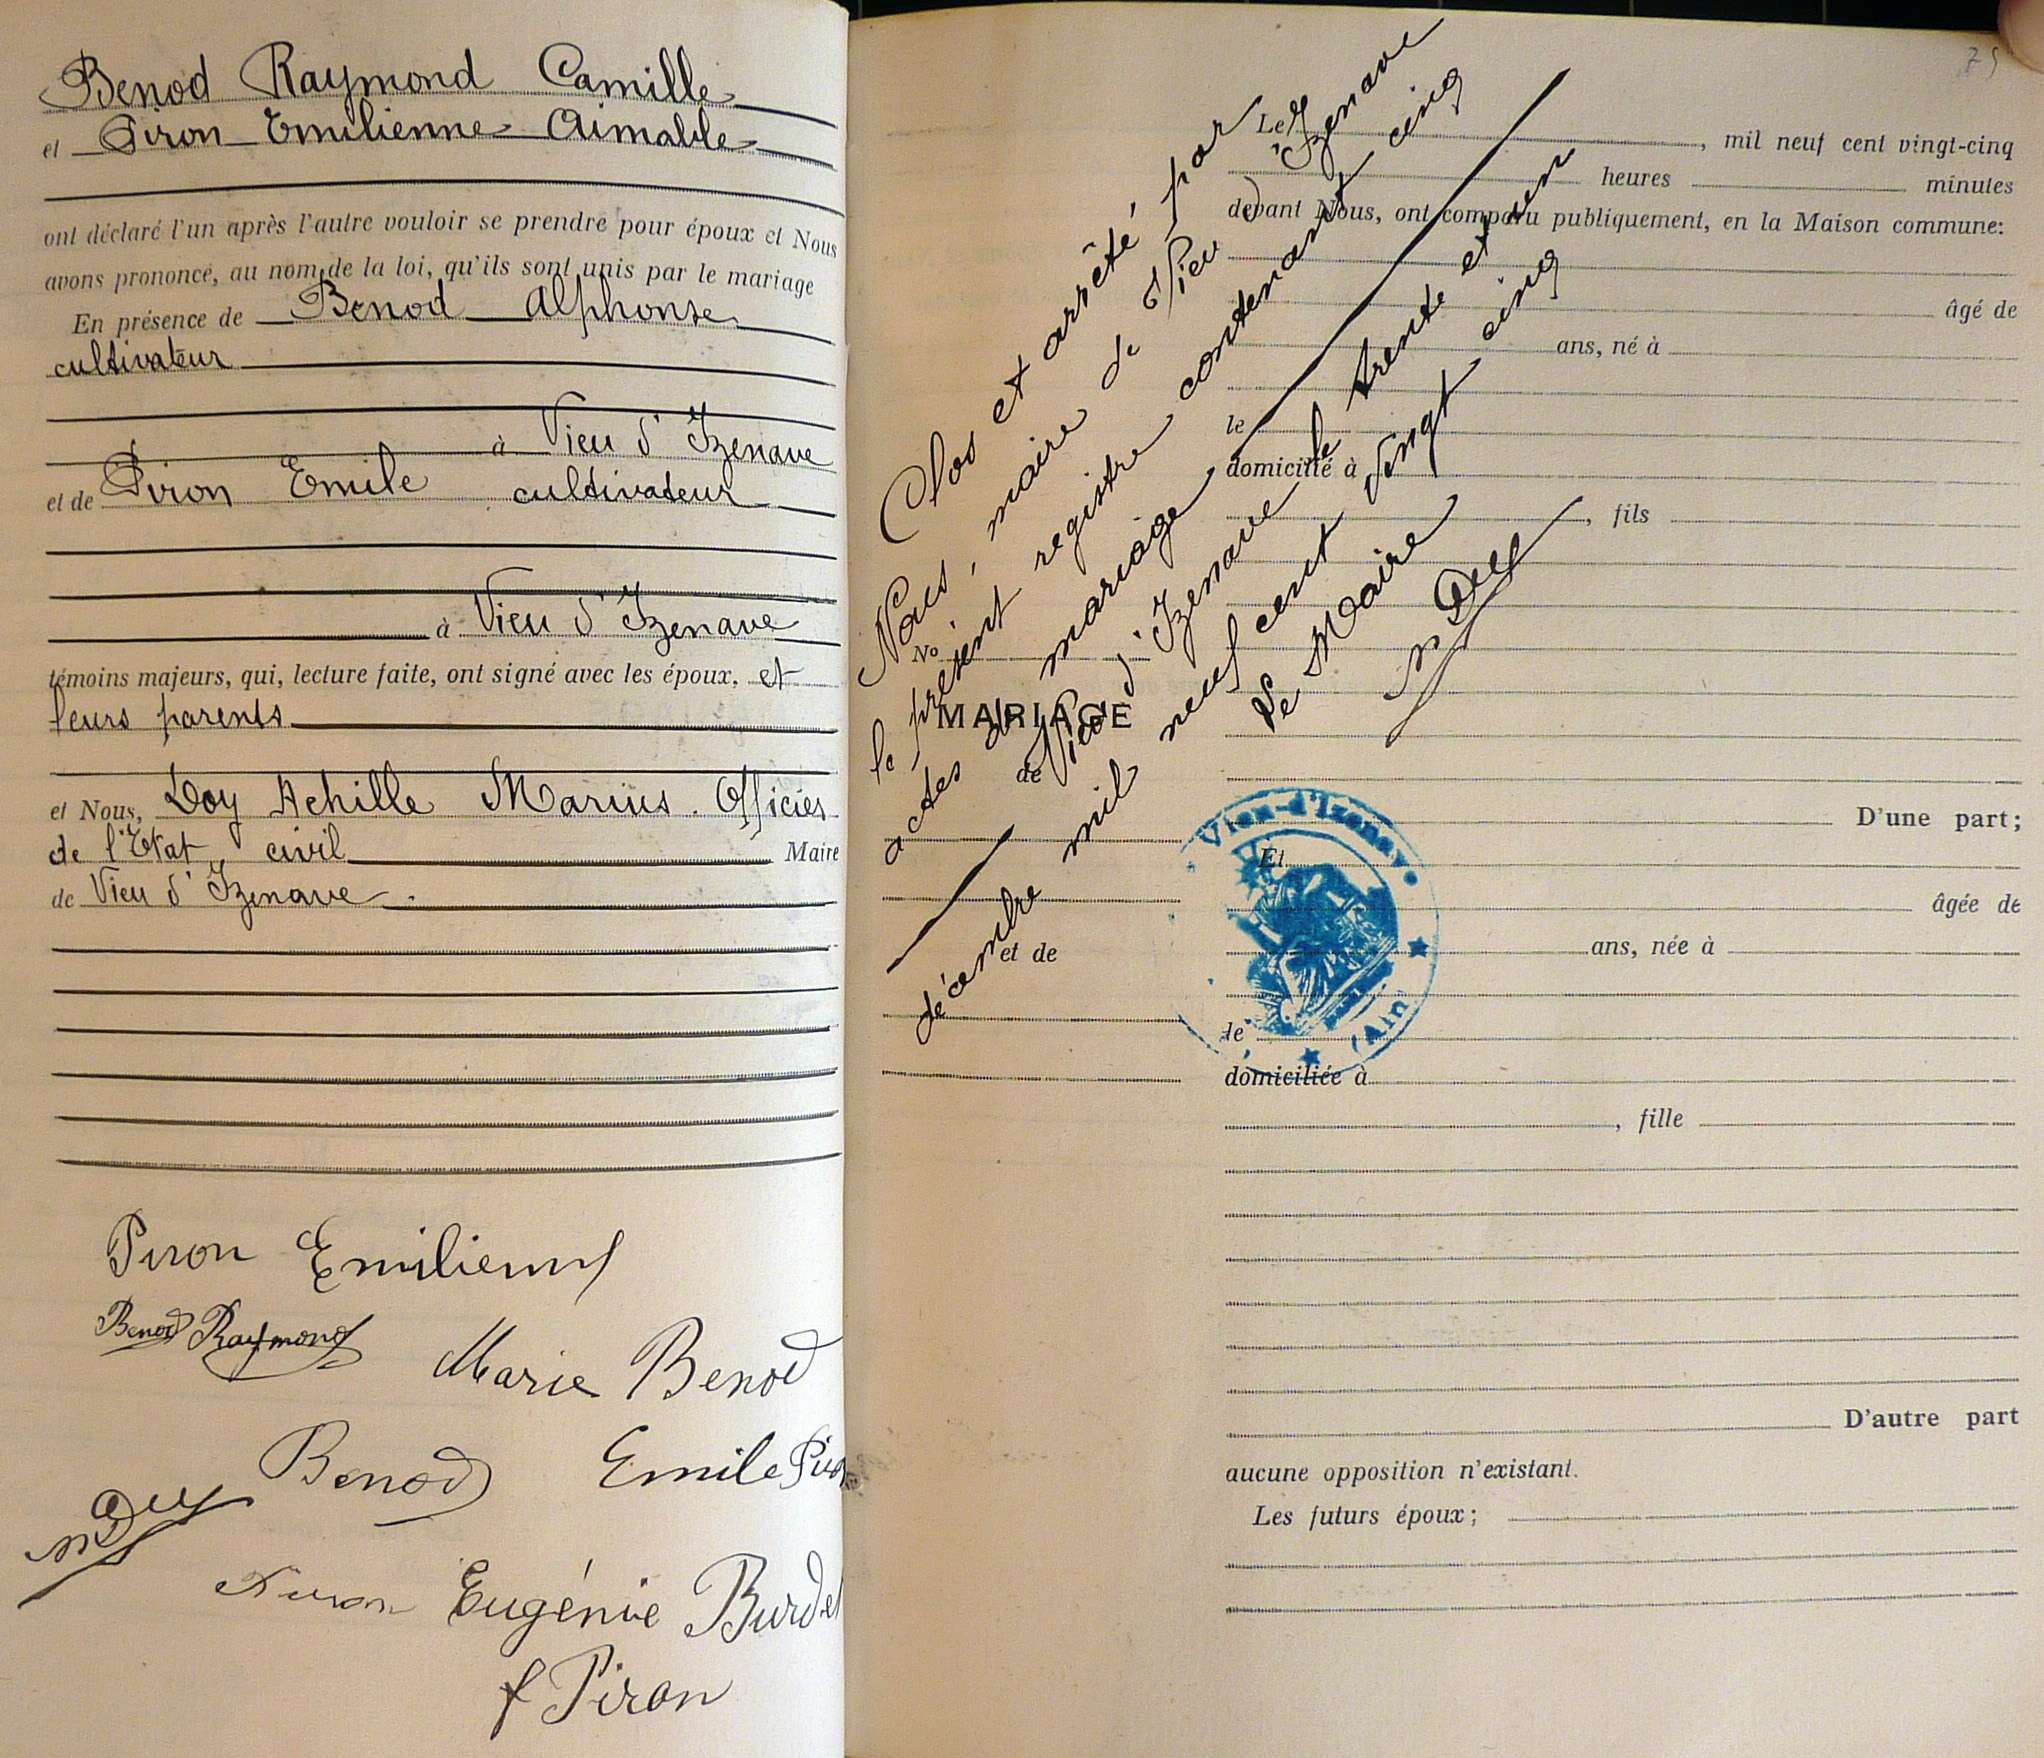 Benod Raymond Camille
et Piron Emilienne Aimable
ont déclaré l'un après l'autre vouloir se prendre pour époux et Nous
avons prononcé, au nom de la loi, qu'ils sont unis par le mariage
En présence de Benod Alphonse
cultivateur
à Vieu d'Izenave
et de Piron Emile cultivateur
à Vieu d'Izenave
témoins majeurs, qui, lecture faite, ont signé avec les époux, et
leurs parents
et Nous, Doy Achille Marius. Officier
de l'Etat civil Maire
de Vieu d'Izenave.
Piron Emilienne
Benod Raymond
Marie Benod
Benod
Emile Piron
Piron
Eugénie Burdet
f Piron
75
Le , mil neuf cent vingt-cinq
heures minutes
devant Nous, ont comparu publiquement, en la Maison commune:
âgé de
ans, né à
le
domicilié à
, fils
D'une part;
Et
âgée de
ans, née à
le
domiciliée à
, fille
D'autre part
aucune opposition n'existant.
Les futurs époux;
No
MARIAGE
de
et de
Clos et arrêté par
Nous, maire de Vieu d'Izenave
le présent registre contenant cinq
actes de mariage
Vieu d'Izenave le trente et un
décembre mil neuf cent vingt cinq
Le Maire
Vieu-d'Izenave
(Ain)